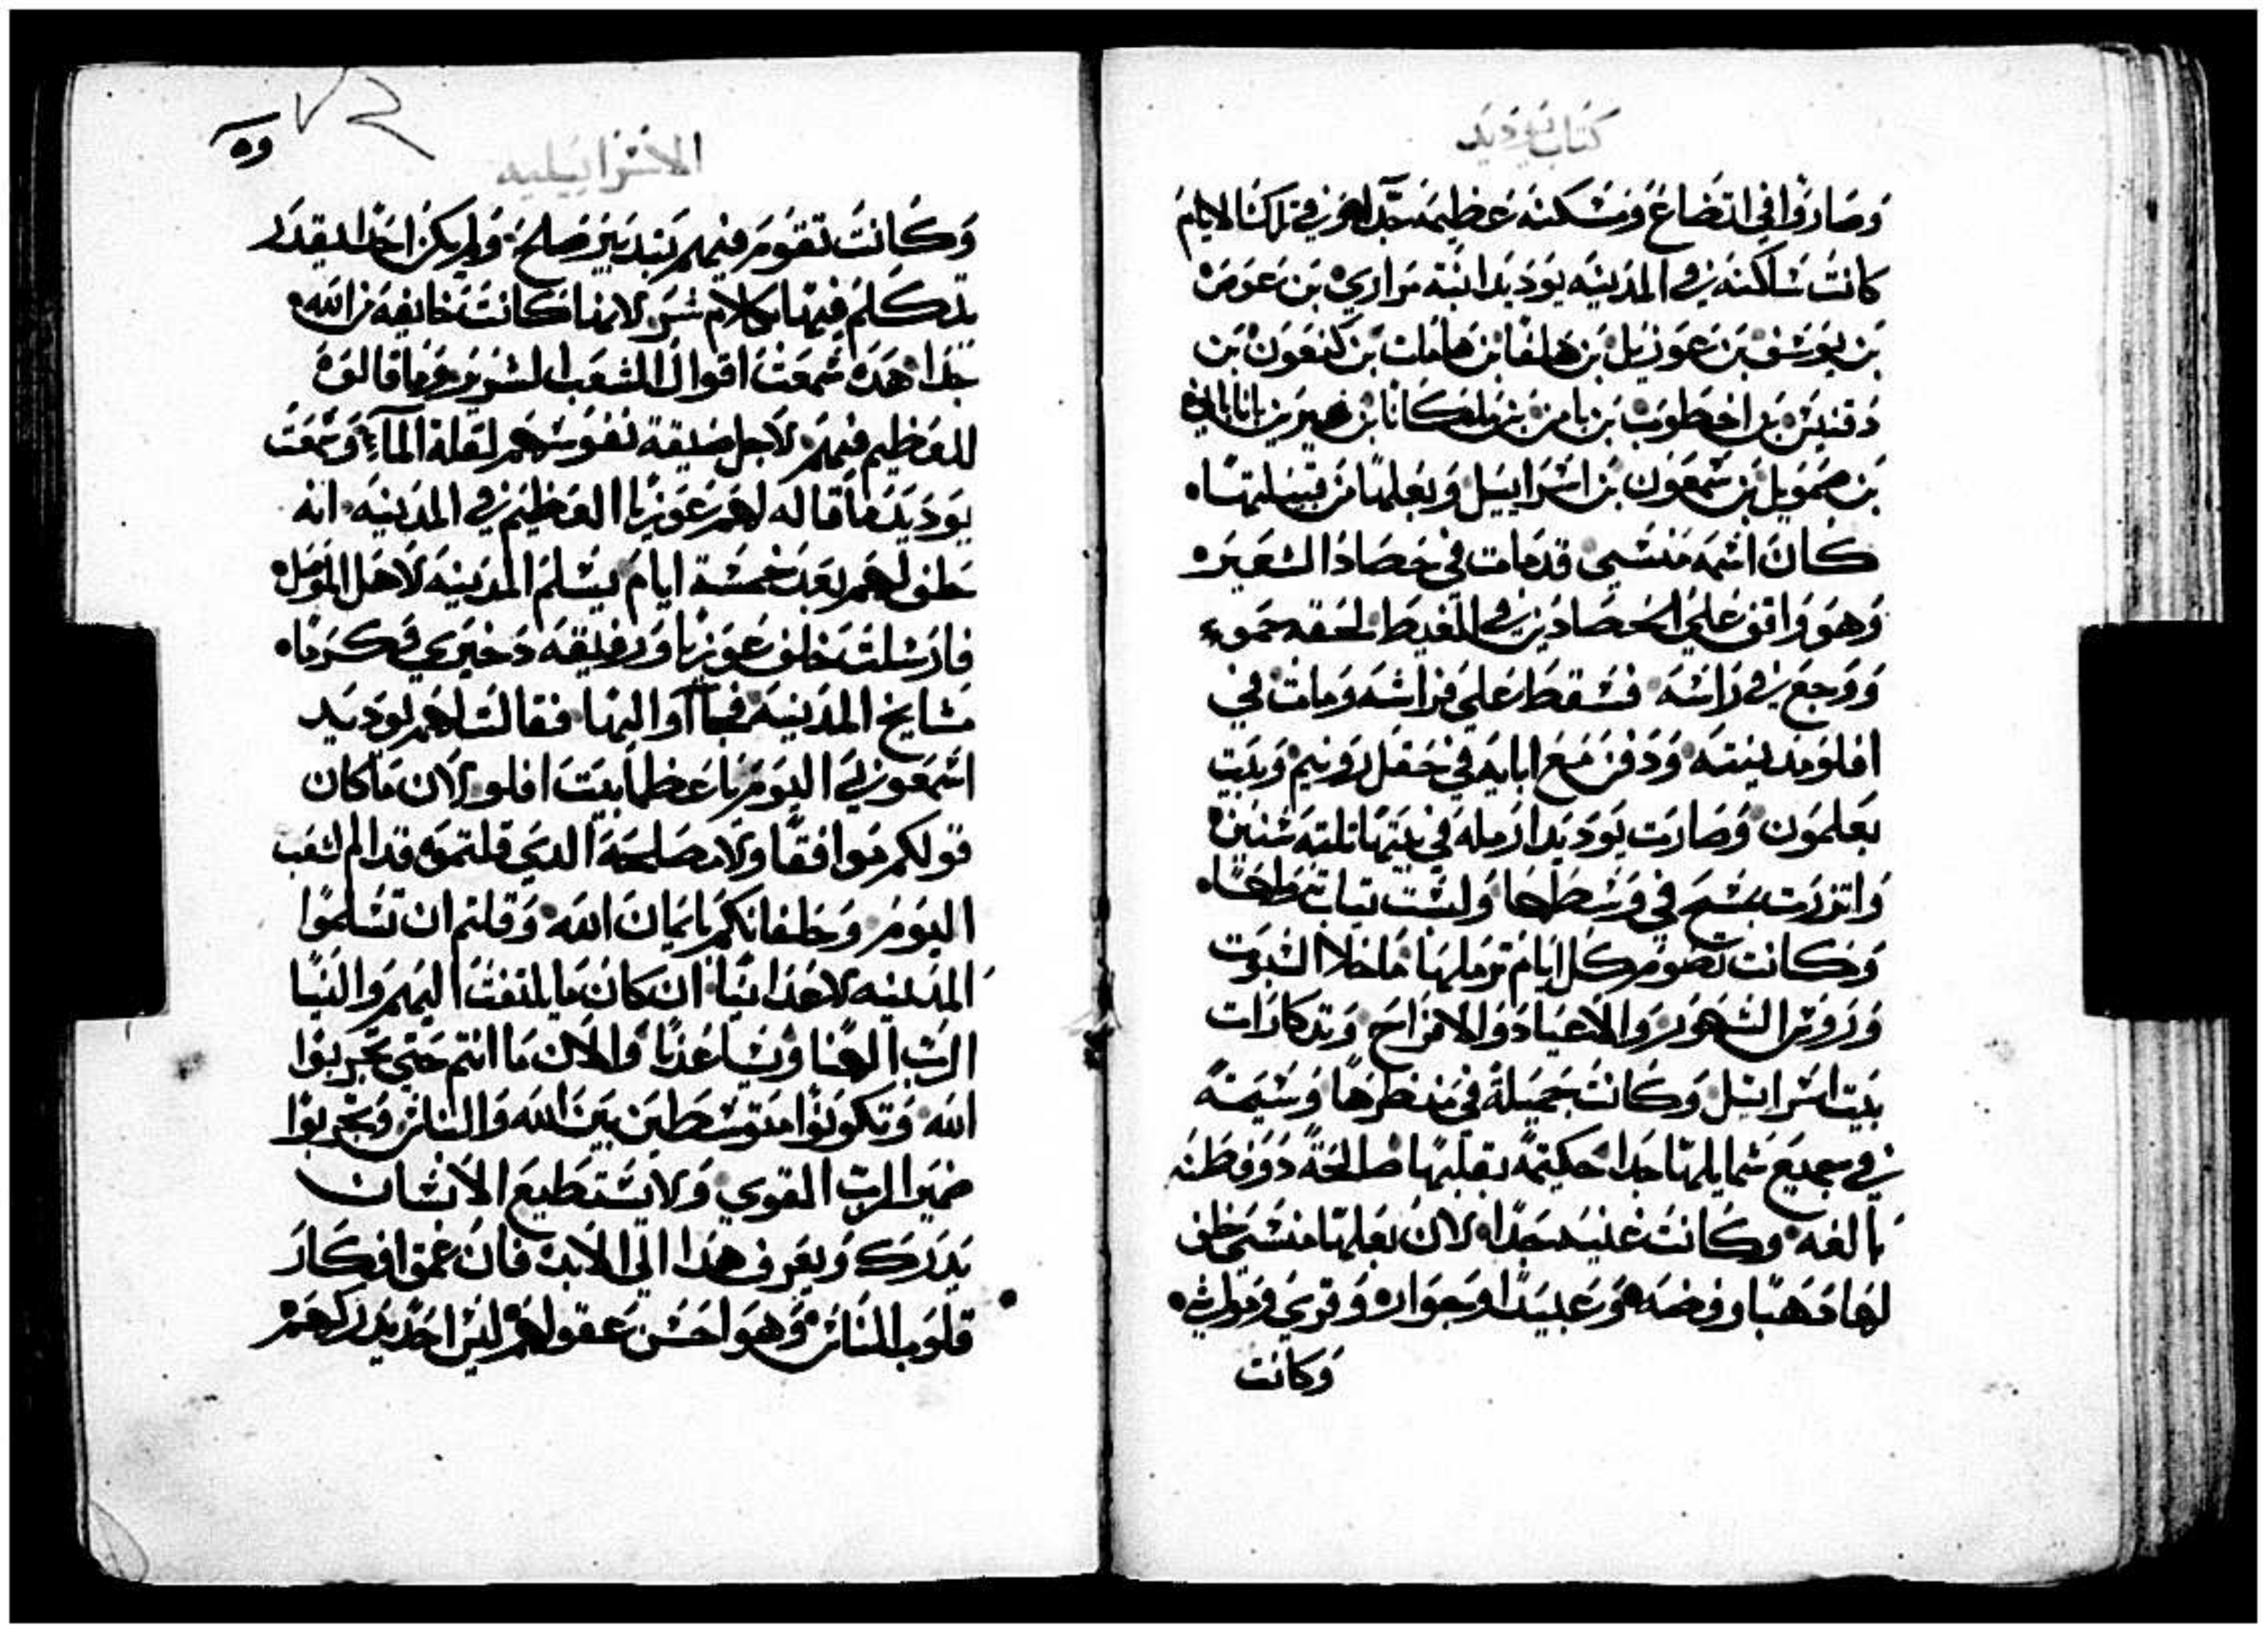 كتاب يوديد
وصاروا في اتضاع ومسكنه عظيمه جدا وفي تلك الايام
كانت ساكنه في المدينه يوديد ابنة مراري بن عوص
بن يوسف بن عوزيل بن هلفا بن هامات بن كنعون بن
دقنيس بن اخطوب بن يامن بن ملفكانا بن
بن صمويل بن شمعون بن اسراييل وبعلها من قبيلتها
كان اسمه منسي قد مات في حصاد الشعير
وهو واقف علي الحصادين في الغيط لحقه حموء
ووجع في راسه فسقط علي فراشه ومات في
افلو مدينته ودفن مع ابايه في حقل رونيم وبيت
بعلمون وصارت يوديد ارمله في بيتها تلته سنين
واتزرت بمسح في وسطها ولبست تياب ترملها
وكانت تصوم كل ايام ترملها ما خلا السبوت
وروس الشهور والاعياد والافراح وتدكارات
بيت اسراييل وكانت جميلة في منظرها وسيمه
في جميع شمايلها جدا حكيمه بقلبها صالحة دو فطنه
بالغه وكانت غنيه جدا لان بعلها منسي خلف
لها دهبا وفضه وعبيدا وجوار وقري ومواشي
وكانت
٥٩
الاسراييليه
وكانت تقوم فيهم بتدبير صلح ولم يكن احدا يقدر
يتكلم فيها بكلام شر لانها كانت خايفه من الله
جدا هده سمعت اقوال الشعب الشرير وما قالوه
للعظيم فيهم لاجل ضيقة نفوسهم لقلة الماء وسمعت
يوديد ما قاله لهم عوزيا العظيم في المدينه انه
حلف لهم بعد خمسة ايام يسلم المدينه لاهل الموصل
فارسلت خلف عوزيا ورفيقه دخبري وكرما
مشايخ المدينه فجآوا اليها فقالت لهم يوديد
اسمعوني اليوم يا عظما بيت افلو لان ما كان
قولكم موافقا ولا مصلحه الدي قلتموه قدام الشعب
اليوم وحلفانكم بايمان الله وقلتم ان تسلموا
المدينه لاعداينا ان كان ما يلتفت اليهم والينا
الرب الهنا ويساعدنا والان ما انتم حتي تجربوا
الله وتكونوا متوسطين بين الله والناس وتجربوا
ضمير الرب القوي ولا يستطيع الانسان
يدرك ويعرف هدا الي الابد فان عمق افكار
قلوب الناس وهواحسن عقولهم ليس احد يدركهم